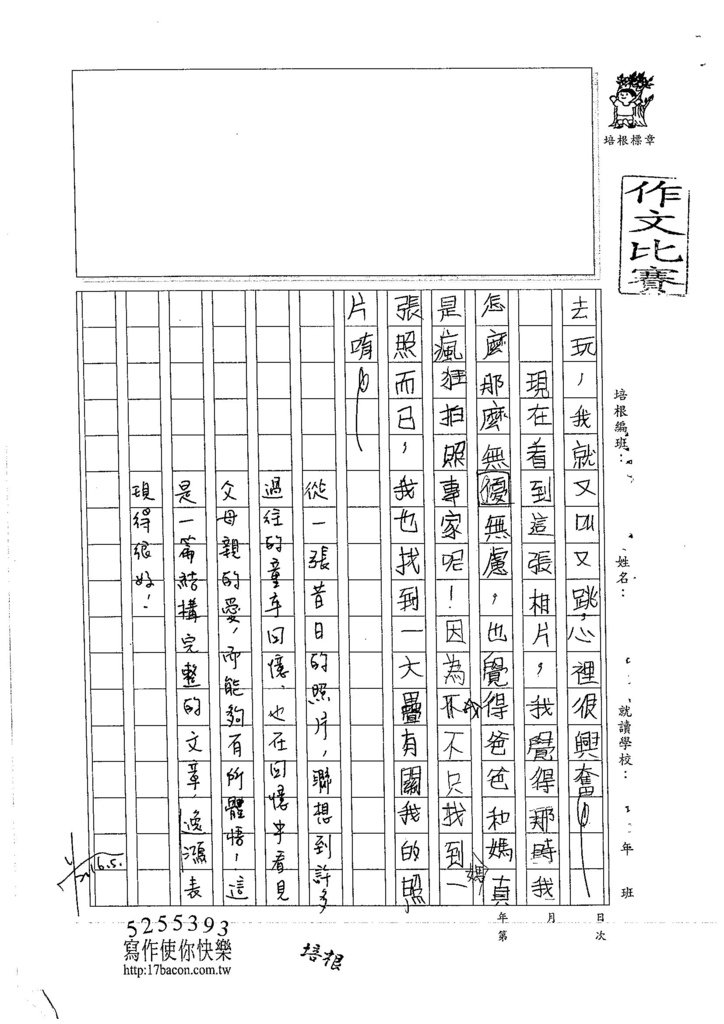 培根標章
作文比賽
培根編班：
姓名：
就讀學校：
年 班
日 月 年
次 第
去玩，我就又叫又跳，心裡很興奮。
現在看到這張相片，我覺得那時我
怎麼那麼無優無慮，也覺得爸爸和媽媽真
是瘋狂拍照事家呢！因為我不只找到一
張照而已，我也找到一大疊有關我的照
片唷。
從一張昔日的照片，聯想到許多
過往的童年回憶，也在回憶中看見
父母親的愛，而能夠有所體悟，這
是一篇結構完整的文章，逸漲表
現得很好！
5255393
寫作使你快樂
http:17bacon.com.tw
培根